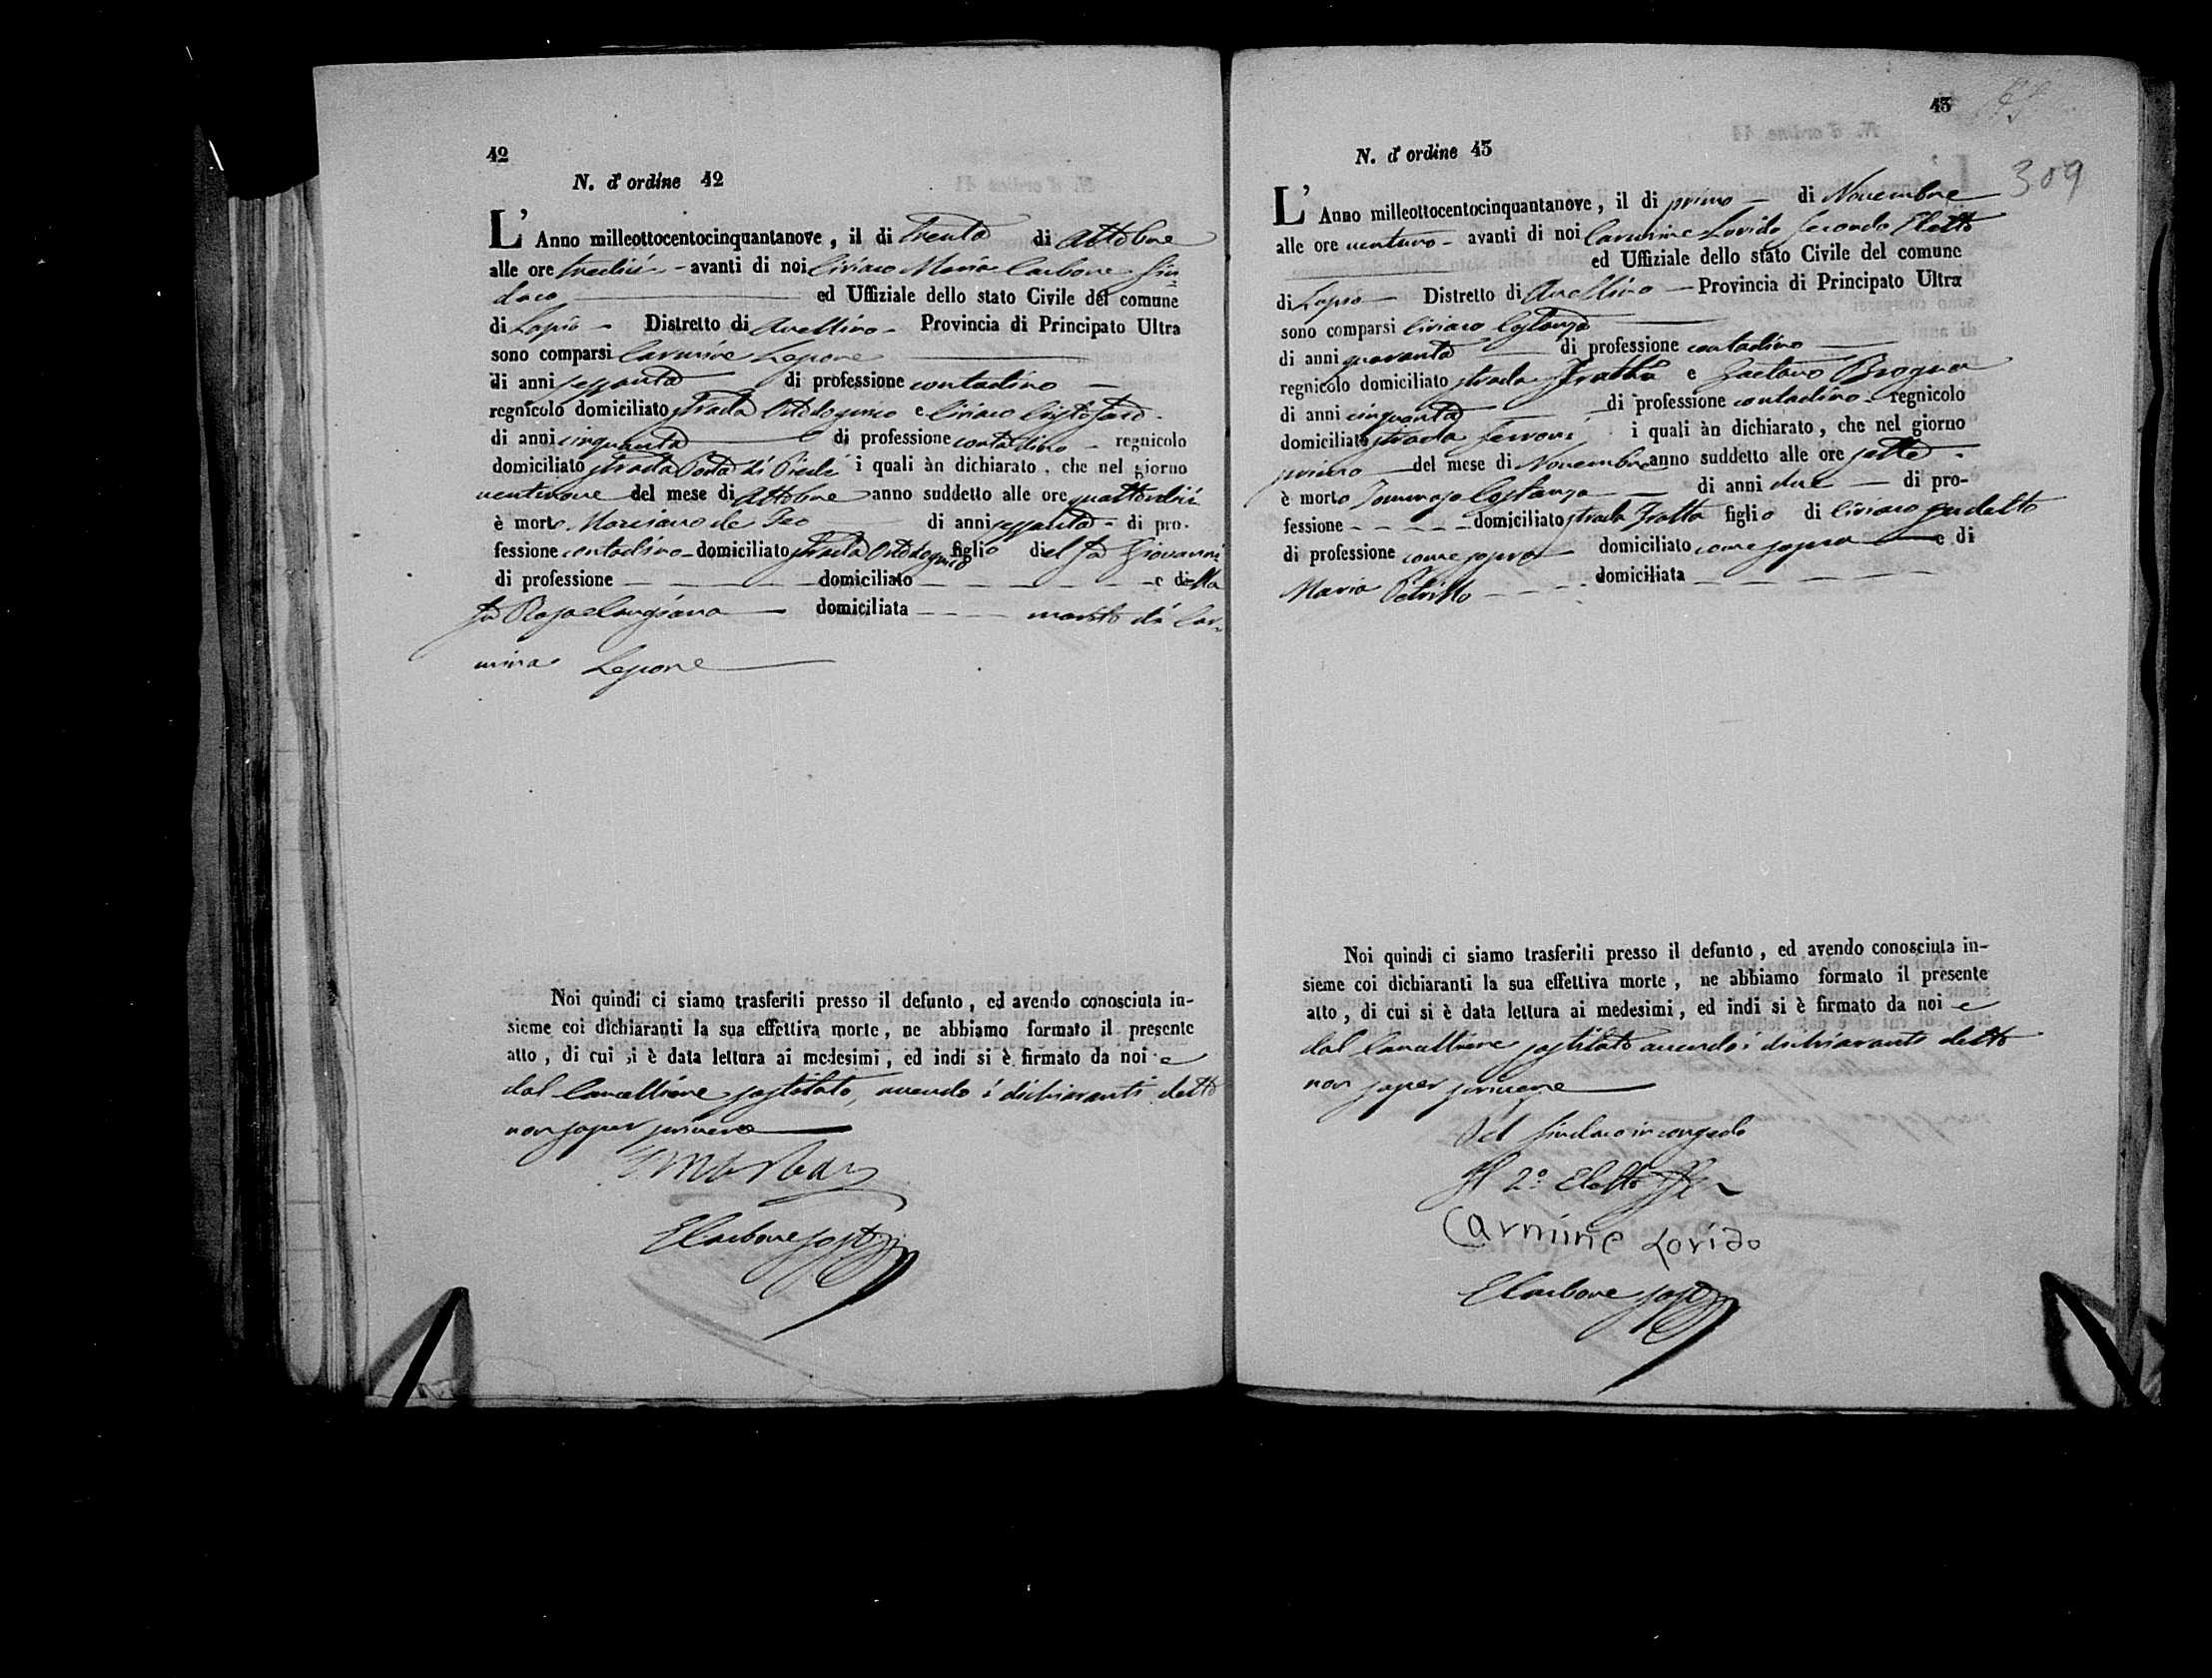 42
N. d'ordine 42
L'Anno milleottocentocinquantanove, il di trenta di Ottobre
alle ore tredici - avanti di noi Ciriaco Maria Carbone Sin-
daco ed Uffiziale dello stato Civile del comune
di Lapio - Distretto di Avellino - Provincia di Principato Ultra
sono comparsi Carmine Lepore
di anni sessanta di professione contadino
regnicolo domiciliato strada e Ciriaco Cristofaro
di anni cinquanta di professione contadino - regnicolo
domiciliato strada Porta di i quali àn dichiarato, che nel giorno
ventinove del mese di Ottobre anno suddetto alle ore quattordici
è morto Marciano de Feo di anni sessanta - di pro-
fessione contadino - domiciliato strada figlio del fu Giovanni
di professione domiciliato e della
fu Rosa domiciliata marito di Car-
mina Lepore
Noi quindi ci siamo trasferiti presso il defunto, ed avendo conosciuta in-
sieme coi dichiaranti la sua effettiva morte, ne abbiamo formato il presente
atto, di cui si è data lettura ai medesimi, ed indi si è firmato da noi e
dal Cancelliere sostituto, avendo i dichiaranti detto
non saper scrivere
ECarbone sost
43
309
N. d'ordine 43
L'Anno milleottocentocinquantanove, il di primo - di Novembre
alle ore ventuno - avanti di noi Carmine Lorido Secondo Eletto
ed Uffiziale dello stato Civile del comune
di Lapio - Distretto di Avellino - Provincia di Principato Ultra
sono comparsi Ciriaco Costanza
di anni quaranta di professione contadino
regnicolo domiciliato strada Fratta e Gaetano Brogna
di anni cinquanta di professione contadino - regnicolo
domiciliato strada Ferroni i quali àn dichiarato, che nel giorno
primo del mese di Novembre anno suddetto alle ore sette -
è morto Tommaso Costanza di anni due - di pro-
fessione - domiciliato strada Fratta figlio di Ciriaco sudetto
di professione come sopra domiciliato come sopra e di
Maria Petrillo domiciliata
Noi quindi ci siamo trasferiti presso il defunto, ed avendo conosciuta in-
sieme coi dichiaranti la sua effettiva morte, ne abbiamo formato il presente
atto, di cui si è data lettura ai medesimi, ed indi si è firmato da noi e
dal Cancelliere sostituto avendo i dichiaranti detto
non saper scrivere
Pel Sindaco in congedo
Il 2º Eletto
Carmine Lorido
ECarbone sost